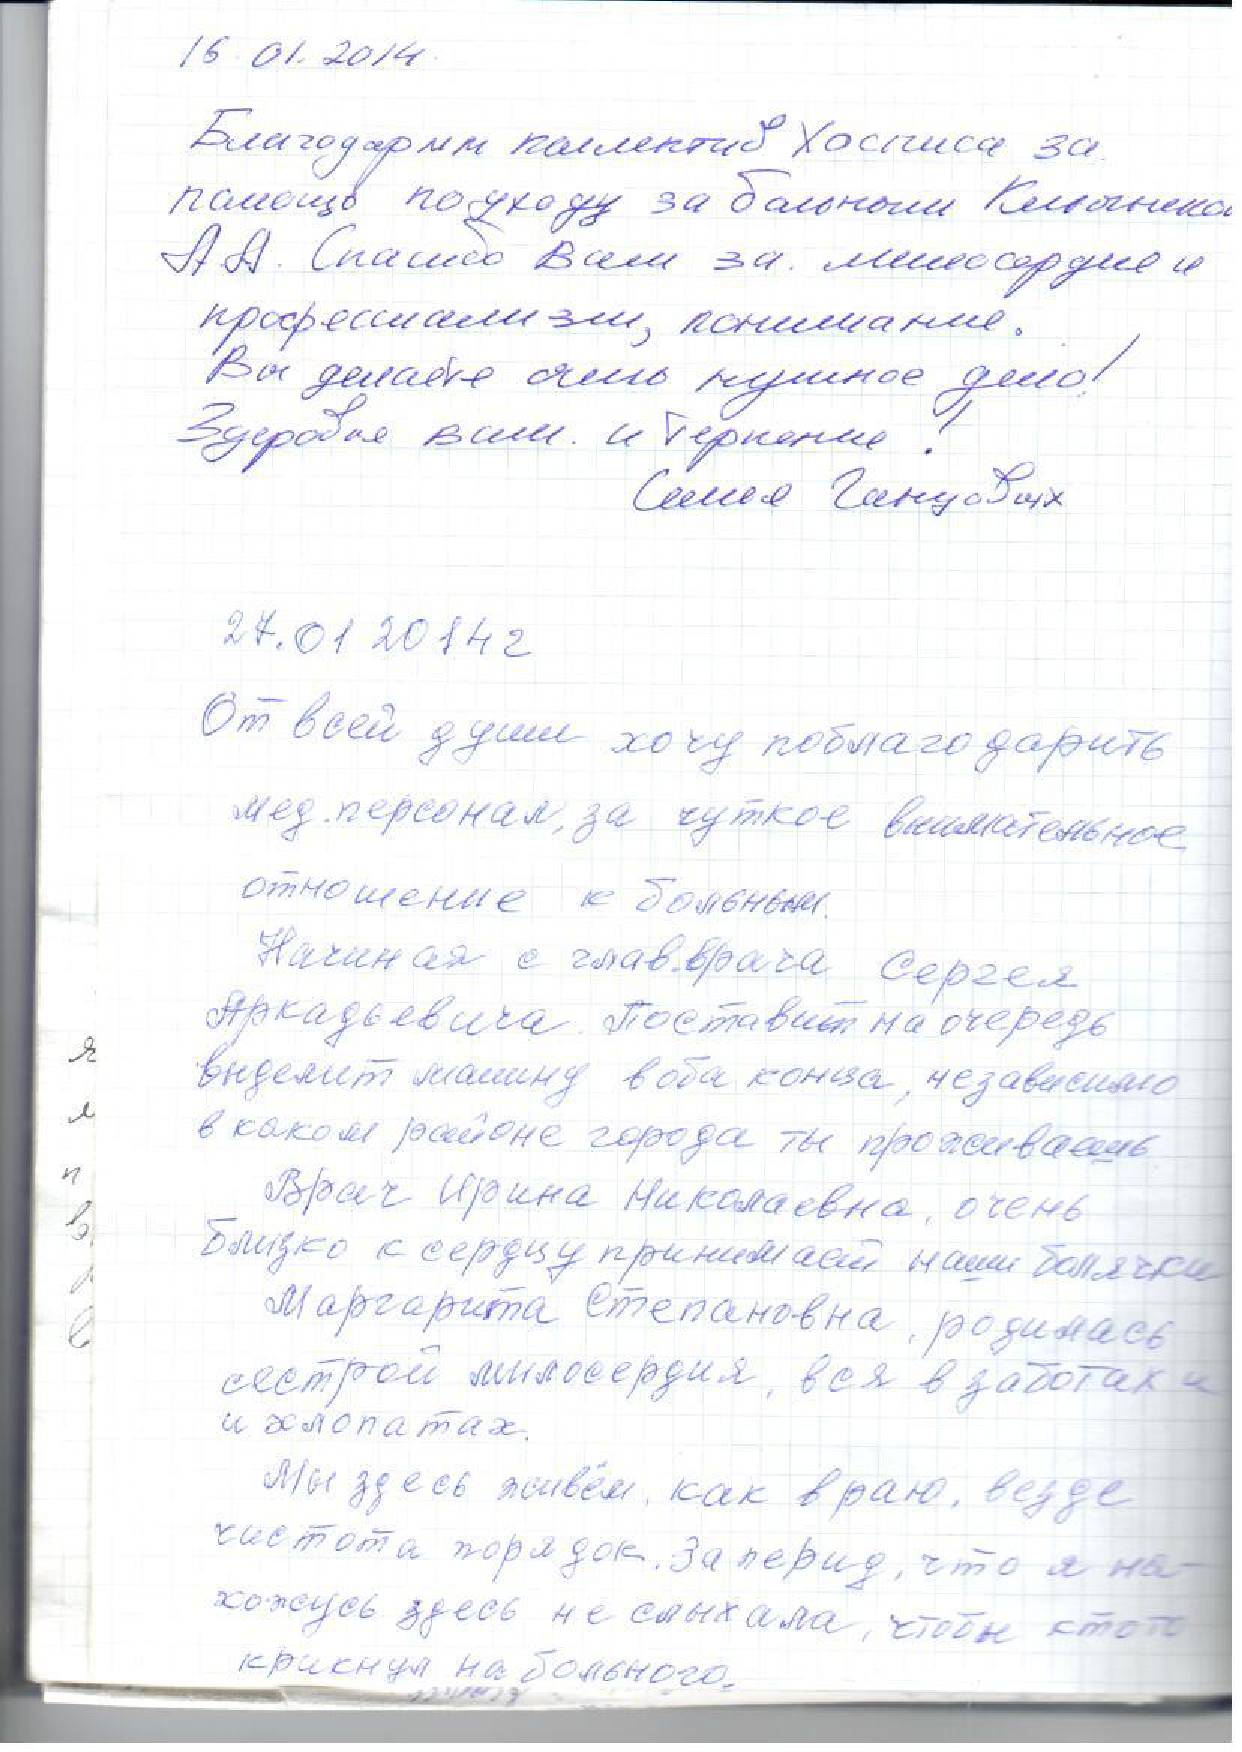 16.01.2014.
Благодарим коллектив Хосписа за
помощь по уходу за больными
А.А. Спасибо Вам за милосердие и
профессиализм, понимание.
Вы делаете очень нужное дело!
Здоровья вам. и терпение!
Семья Ганцовых
27.01 2014г
От всей души хочу поблагодарить
мед.персонал, за чуткое внимательное
отношение к больным.
Начиная с глав.врача Сергея
Аркадьевича. Поставит на очередь
выделит машину в оба конца, независимо
в каком районе города ты проживаешь
Врач Ирина Николаевна, очень
близко к сердцу принимает наши болячки
Маргарита Степановна, родилась
сестрой милосердия, вся в заботах и
и хлопатах.
Мы здесь живём, как в раю, везде
чистота порядок. За перид, что я на-
хожусь здесь не слыхала, чтобы ктото
крикнул на больного.
я
л
п
в
в